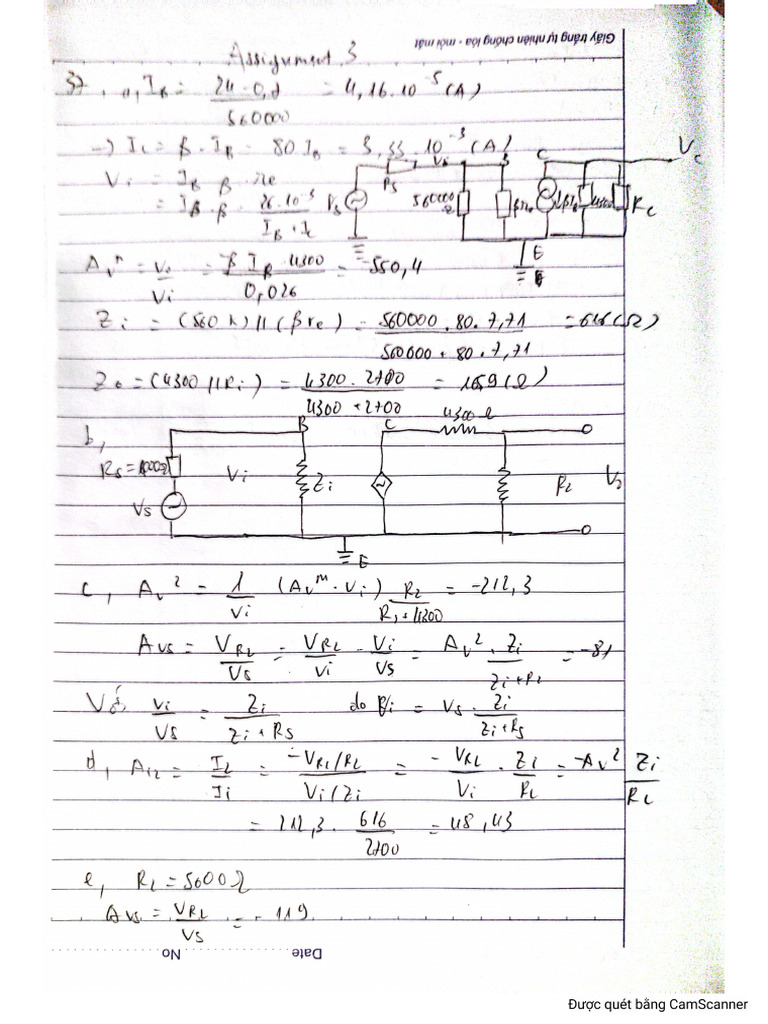 Giấy trắng tự nhiên chống lóa - mỏi mắt
Assignment 3
37, a, I_B = (24 - 0,7)/560000 = 4,16.10^-5 (A)
→ I_C = β . I_B = 80 I_B = 3,33 . 10^-3 (A)
V_i = I_B β re
= I_B . β . 26.10^-3/(I_B + I_C)
V_S R_S 560000 Ω B βre C βI_B 4300 R_L V_C
E
A_v = V_o/V_i = β I_B 4300/0,026 = -550,4
Z_i = (560 k) // (βre) = 560000 . 80 . 7,71/(560000 + 80 . 7,71) = 616 (Ω)
Z_o = (4300 // R_i) = 4300 . 2700/(4300 + 2700) = 1659 (Ω)
b,
B C 4300 Ω
R_S = 1000Ω V_i Z_i R_L V_o
V_S
E
c, A_v2 = 1/V_i (A_v^M . V_i) R_L/(R_L + 4300) = -212,3
A_vs = V_RL/V_S = V_RL/V_i . V_i/V_S = A_v2 . Z_i/(Z_i + R_L) = -81
Với V_i/V_S = Z_i/(Z_i + R_S) do V_i = V_S . Z_i/(Z_i + R_S)
d, A_i2 = I_L/I_i = (-V_RL/R_L)/(V_i/Z_i) = -V_RL/V_i . Z_i/R_L = -A_v2 Z_i/R_L
= 212,3 . 616/2700 = 48,43
e, R_L = 5600 Ω
A_vs = V_RL/V_S = -119
Date
No
Được quét bằng CamScanner